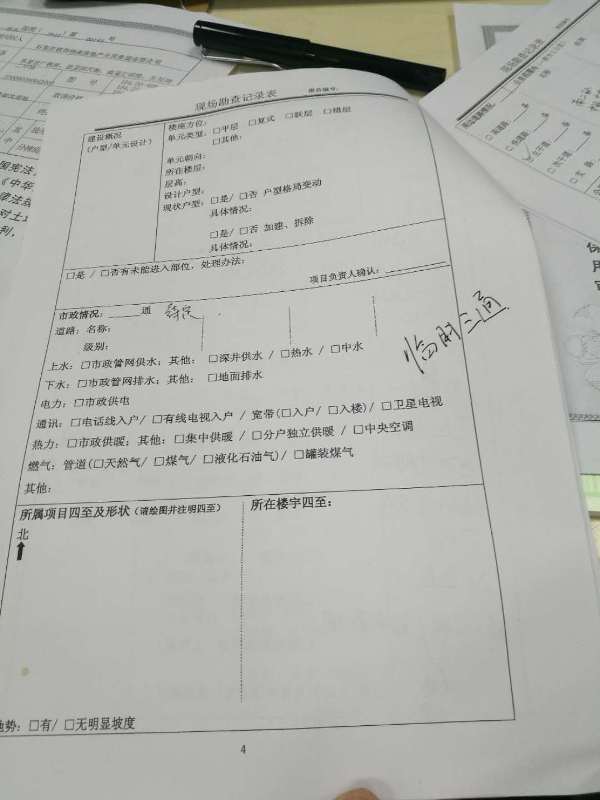 现场勘查记录表
报告编号:
建设概况
(户型/单元设计)
楼座方位:
单元类型: □平层 □复式 □跃层 □错层
□其他:
单元朝向:
所在楼层:
层高:
设计户型:
现状户型: □是/ □否 户型格局变动
具体情况:
□是/ □否 加建、拆除
具体情况:
□是 / □否有未能进入部位，处理办法:
项目负责人确认:
市政情况: ______通
道路: 名称:
级别:
临时三通
上水: □市政管网供水; 其他: □深井供水 / □热水 / □中水
下水: □市政管网排水; 其他: □地面排水
电力: □市政供电
通讯: □电话线入户/ □有线电视入户 / 宽带(□入户/ □入楼)/ □卫星电视
热力: □市政供暖; 其他: □集中供暖 / □分户独立供暖 / □中央空调
燃气: 管道(□天然气/ □煤气/ □液化石油气)/ □罐装煤气
其他:
所属项目四至及形状 (请绘图并注明四至)
所在楼宇四至:
北
地势: □有/ □无明显坡度
4